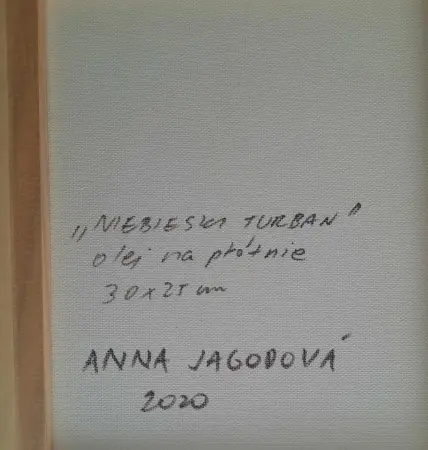 „NIEBIESKI TURBAN"
olej na płótnie
30x25 cm
ANNA JAGODOVÁ
2020